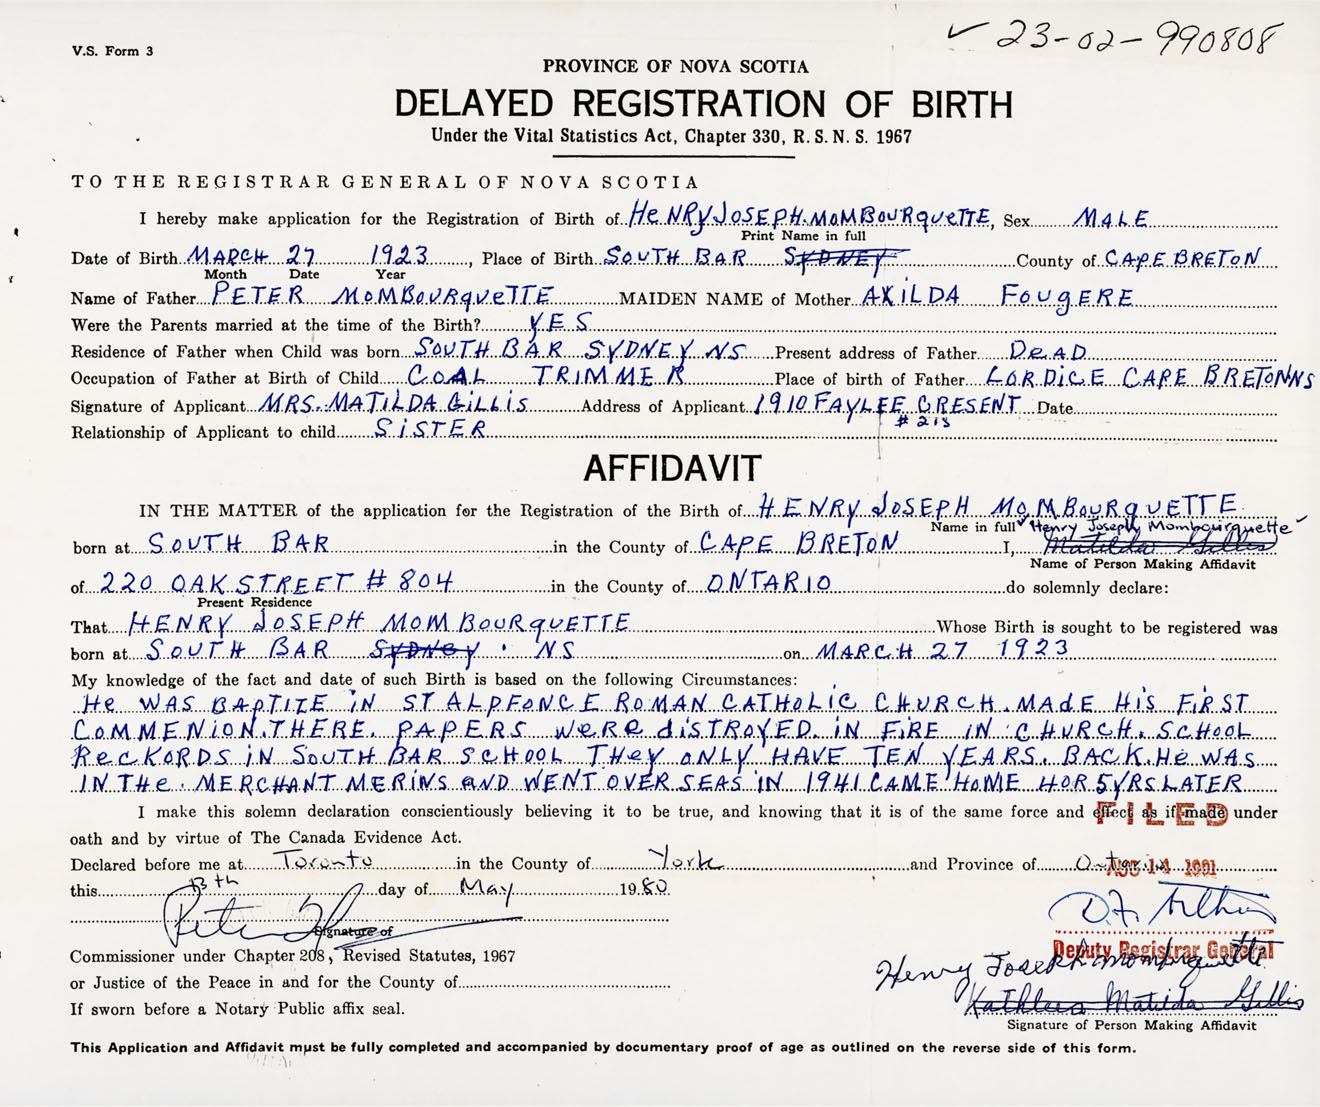 ✓ 23-02-990808
V.S. Form 3
PROVINCE OF NOVA SCOTIA
DELAYED REGISTRATION OF BIRTH
Under the Vital Statistics Act, Chapter 330, R. S. N. S. 1967
TO THE REGISTRAR GENERAL OF NOVA SCOTIA
I hereby make application for the Registration of Birth of HENRY JOSEPH MOMBOURQUETTE, Sex MALE
Print Name in full
Date of Birth MARCH 27 1923, Place of Birth SOUTH BAR SYDNEY County of CAPE BRETON
Month Date Year
Name of Father PETER MOMBOURQUETTE MAIDEN NAME of Mother AXILDA FOUGERE
Were the Parents married at the time of the Birth? YES
Residence of Father when Child was born SOUTH BAR SYDNEY NS Present address of Father DEAD
Occupation of Father at Birth of Child COAL TRIMMER Place of birth of Father LORDICE CAPE BRETON NS
Signature of Applicant MRS. MATILDA GILLIS Address of Applicant 1910 FAYLEE CRESENT Date
# 215
Relationship of Applicant to child SISTER
AFFIDAVIT
IN THE MATTER of the application for the Registration of the Birth of HENRY JOSEPH MOMBOURQUETTE
Name in full ✓ Henry Joseph Mombourquette ✓
born at SOUTH BAR in the County of CAPE BRETON I, Matilda Gillis
Name of Person Making Affidavit
of 220 OAK STREET # 804 in the County of ONTARIO do solemnly declare:
Present Residence
That HENRY JOSEPH MOMBOURQUETTE Whose Birth is sought to be registered was
born at SOUTH BAR SYDNEY NS on MARCH 27 1923
My knowledge of the fact and date of such Birth is based on the following Circumstances:
HE WAS BAPTIZE IN ST ALPFONCE ROMAN CATHOLIC CHURCH. MADE HIS FIRST
COMMENION. THERE. PAPERS WERE DISTROYED. IN FIRE IN CHURCH. SCHOOL
RECKORDS IN SOUTH BAR SCHOOL THEY ONLY HAVE TEN YEARS. BACK. HE WAS
IN THE MERCHANT MERINS AND WENT OVER SEAS IN 1941 CAME HOME 4 OR 5 YRS LATER
I make this solemn declaration conscientiously believing it to be true, and knowing that it is of the same force and effect as if made under
FILED
oath and by virtue of The Canada Evidence Act.
Declared before me at Toronto in the County of York and Province of Ontario
AUG 14 1981
this 13th day of May 1980
Signature of
Deputy Registrar General
Commissioner under Chapter 208, Revised Statutes, 1967
Henry Joseph Mombourquette
or Justice of the Peace in and for the County of
Kathleen Matilda Gillis
If sworn before a Notary Public affix seal.
Signature of Person Making Affidavit
This Application and Affidavit must be fully completed and accompanied by documentary proof of age as outlined on the reverse side of this form.